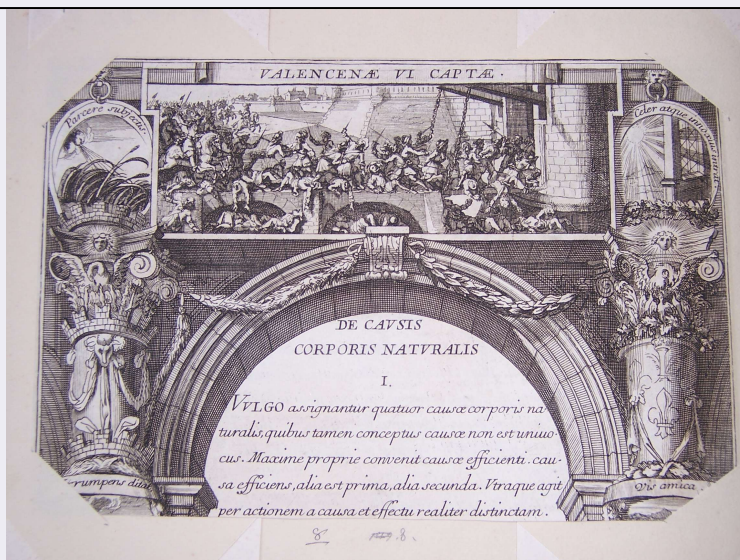 VALENCENÆ VI CAPTÆ.
Parcere subjectis
Celer atque
DE CAVSIS
CORPORIS NATVRALIS
I.
VVLGO assignantur quatuor causæ corporis na
turalis, quibus tamen conceptus causæ non est uniuo-
cus. Maxime proprie convenit causæ efficienti. cau-
sa efficiens, alia est prima, alia secunda. Vtraque agit
per actionem a causa et effectu realiter distinctam.
rumpens
Vis amica
8
8.